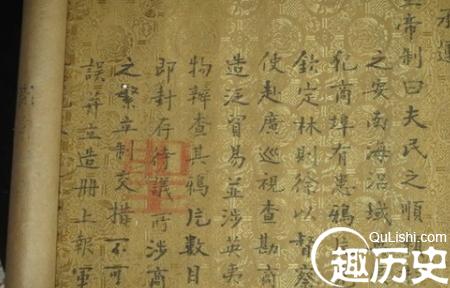 承運
皇帝制曰夫民之順
之安南海沿域
犯商埠有患鴉片
欽定林則徐以督察
使赴廣巡視查勘商
造泛貿易並涉英夷
物辦查其鴉片數目
即封存待議所涉商
之繫立制交措不可
誤并立造册上報軍
QuLiShi.com
趣历史